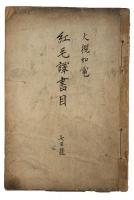 大槻如電
紅毛譯書目